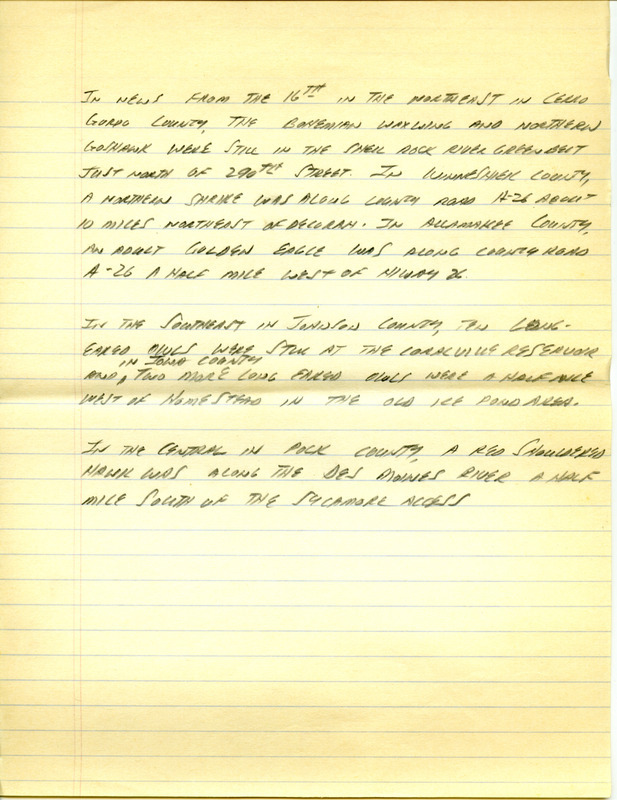 IN NEWS FROM THE 16TH IN THE NORTHEAST IN CERRO
GORDO COUNTY, THE BOHEMIAN WAXWING AND NORTHERN
GOSHAWK WERE STILL IN THE SHELL ROCK RIVER GREENBELT
JUST NORTH OF 290TH STREET. IN WINNESHIEK COUNTY,
A NORTHERN SHRIKE WAS ALONG COUNTY ROAD A-26 ABOUT
10 MILES NORTHEAST OF DECORAH. IN ALLAMAKEE COUNTY,
AN ADULT GOLDEN EAGLE WAS ALONG COUNTY ROAD
A-26 A HALF MILE WEST OF HIWAY 26.
IN THE SOUTHEAST IN JOHNSON COUNTY, TEN LONG-
EARED OWLS WERE STILL AT THE CORALVILLE RESERVOIR
IN IOWA COUNTY
AND, TWO MORE LONG EARED OWLS WERE A HALF MILE
WEST OF HOMESTEAD IN THE OLD ICE POND AREA.
IN THE CENTRAL IN POLK COUNTY, A RED SHOULDERED
HAWK WAS ALONG THE DES MOINES RIVER A HALF
MILE SOUTH OF THE SYCAMORE ACCESS